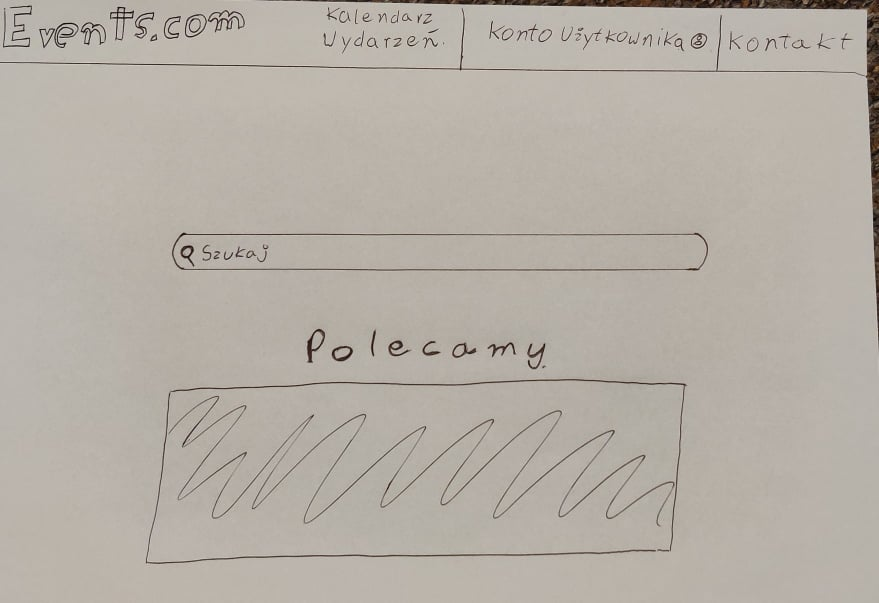 Events.com
Kalendarz
Wydarzeń.
Konto Użytkownika
Kontakt
Szukaj
Polecamy